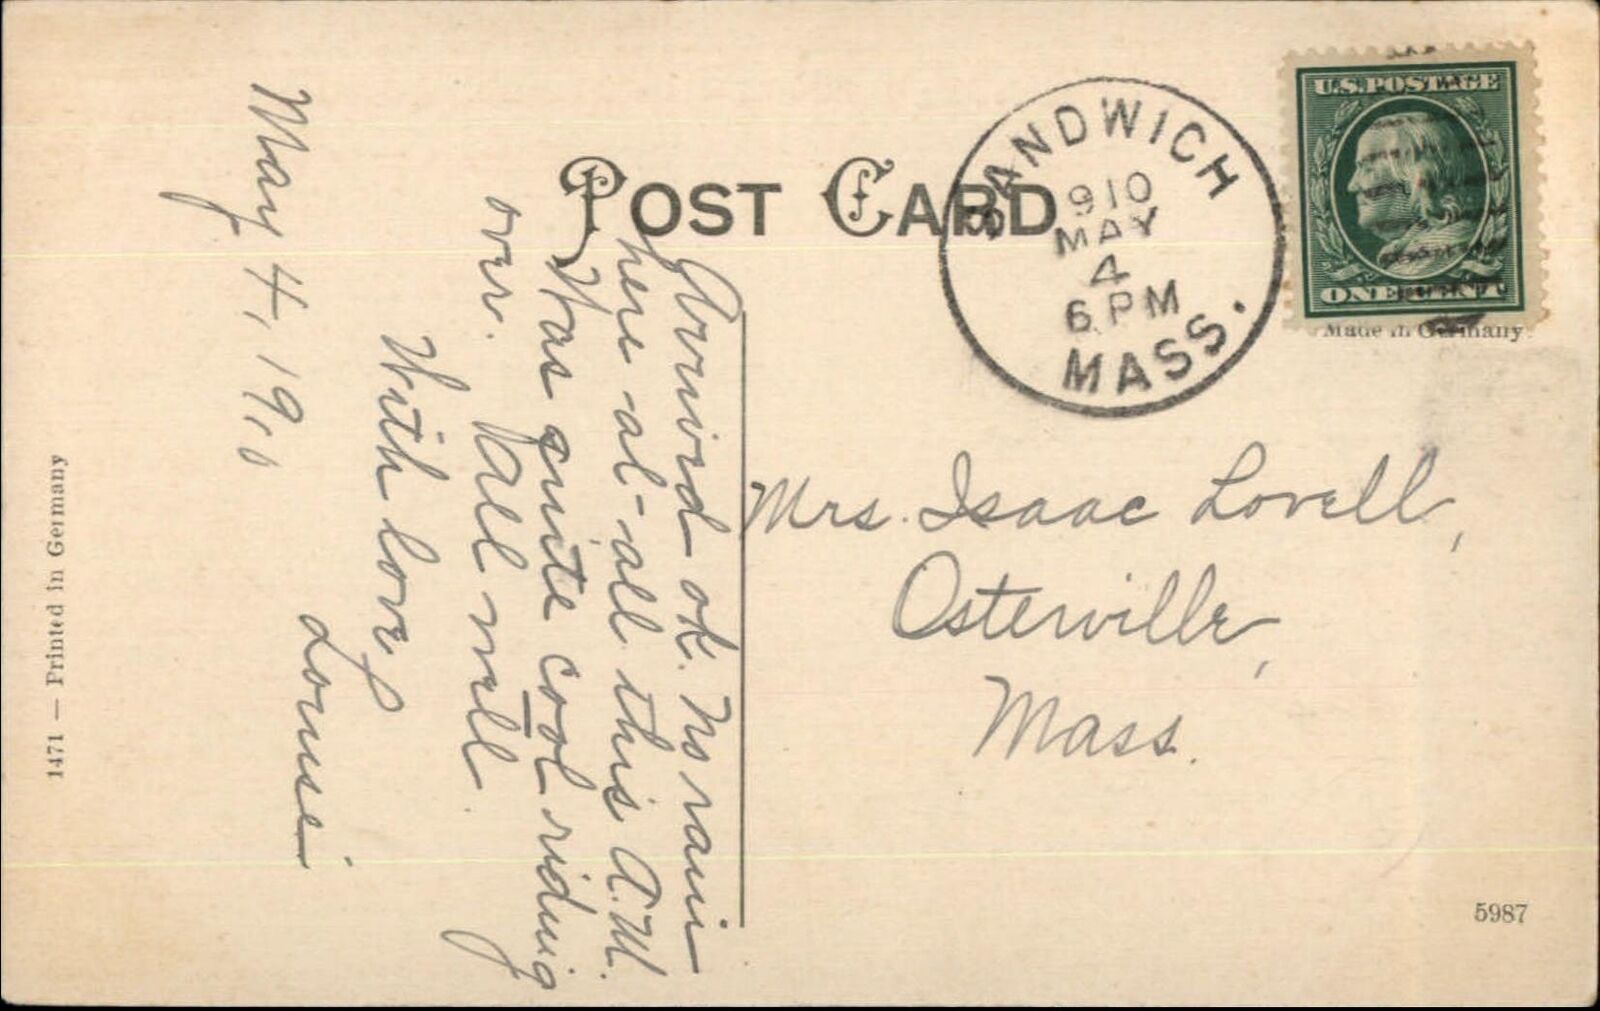 POST CARD
SANDWICH
1910
MAY
4
6 PM
MASS.
U.S. POSTAGE
ONE CENT
Made in Germany
May 4, 1910
Arrived ok. No rain
here at-all this A.M.
Was quite cool riding
over. All well.
With love,
Louise
Mrs. Isaac Lovell,
Osterville,
Mass.
1471 — Printed in Germany
5987